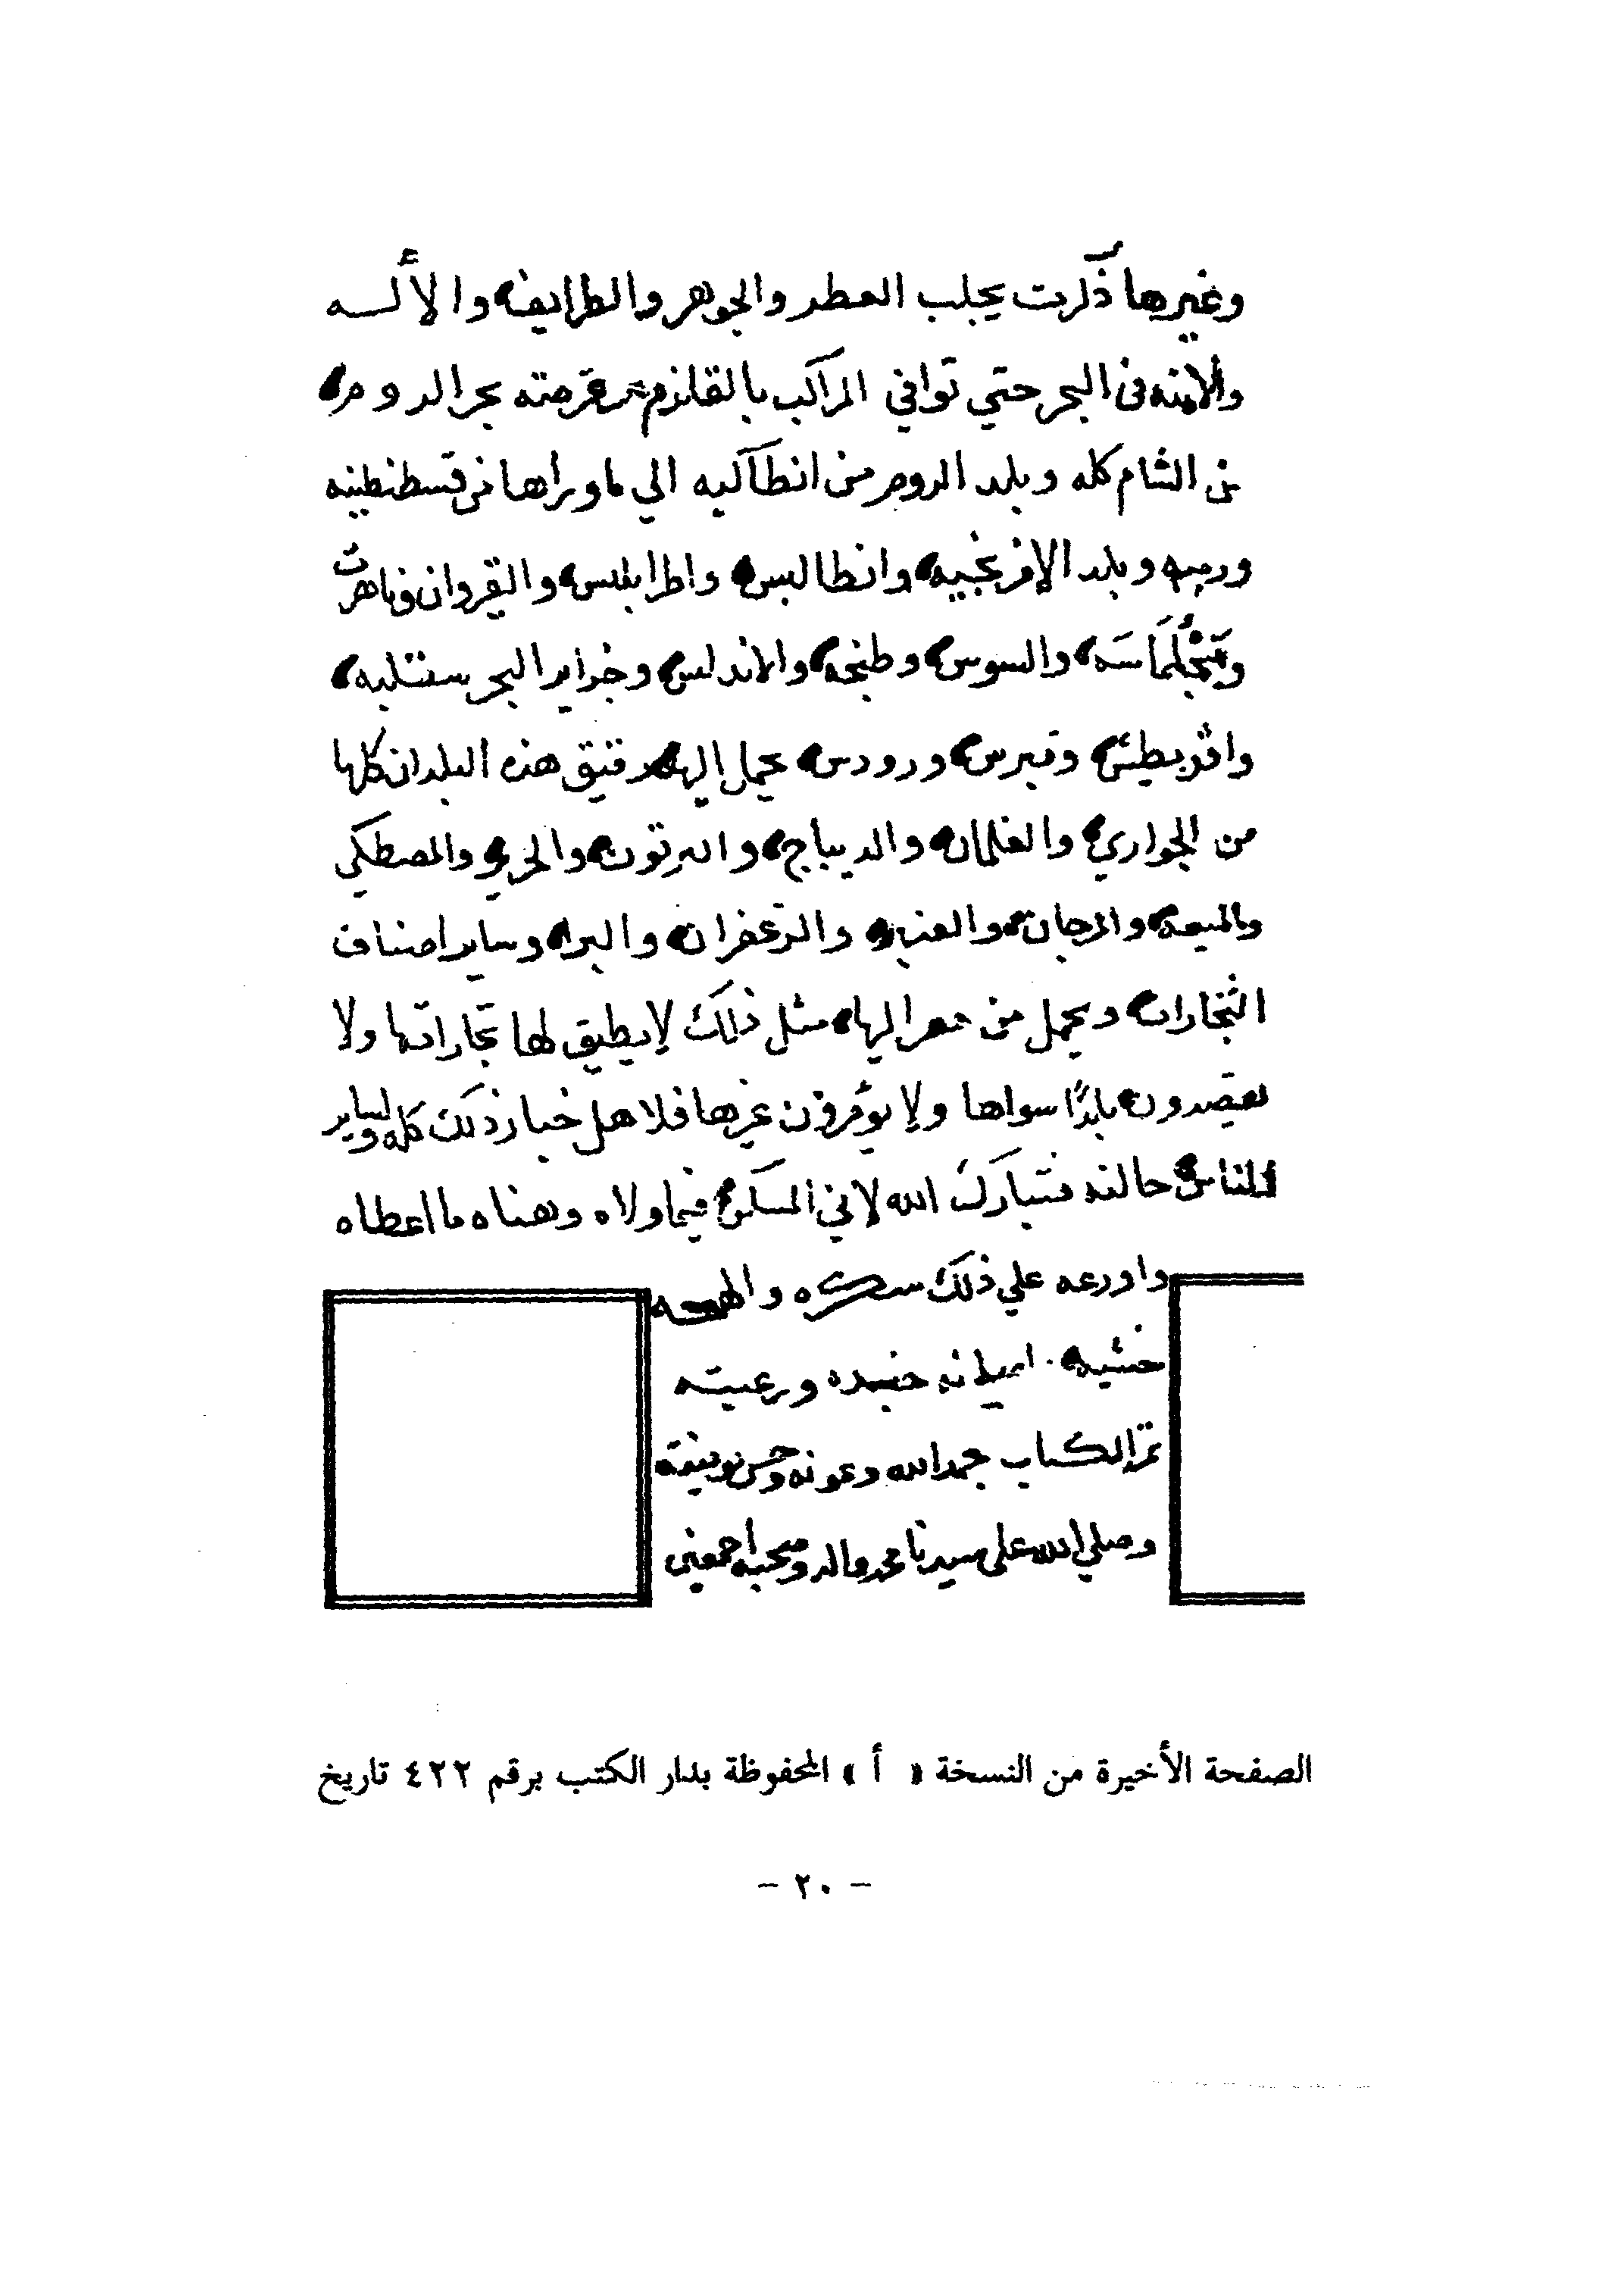 وغيرها ذكرت يجلب العطر والجوهر والطرايف والالـــه
والامنه فى البحر حتي توافي المراكب بالقلزم ثم فرضته بحر الروم
من الشام كله وبلد الروم من انطاكيه الي ماوراها من قسطنطينه
وروميه وبلد الافرنجيه وانطابلس واطرابلس والقيروان وتاهرت
وسجلماسه والسوس وطنجه والاندلس وجزاير البحر سقليه
واقريطش وقبرس ورودس يحمل اليها رقيق هذه البلدان كلها
من الجواري والغلمان والديباج والحرير والمصطكي
والميعه والمرجان والعنبر والزعفران وساير اصناف
التجارات ويحمل من مصر اليها مثل ذلك لا يطيق لها تجاراتها ولا
يقصدون بلدًا سواها ولا غيرها فلاهل ذلك كله ولساير
الناس فتبارك الله فيما ولاه وهناه ما اعطاه
علي ذلك شكره
خشيه ورعيته
تم الكتاب بحمد الله وعونه وحسن توفيقه
وصلي الله على سيدنا محمد واله وصحبه اجمعين
الصفحة الأخيرة من النسخة « أ » المحفوظة بدار الكتب برقم ٤٢٢ تاريخ
– ٢٠ –